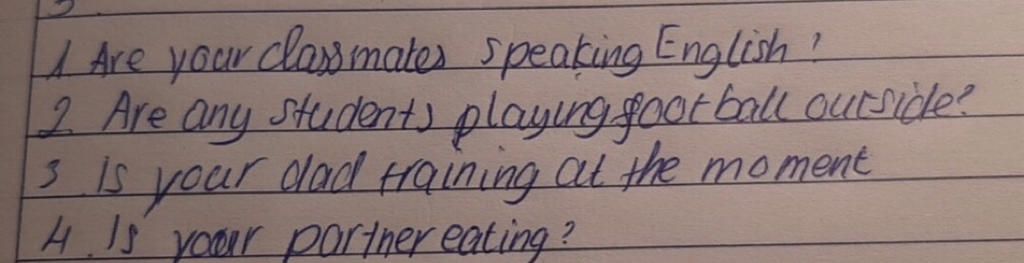 1 Are your classmates speaking English?
2. Are any students playing football outside?
3 Is your dad training at the moment
4. Is your partner eating?